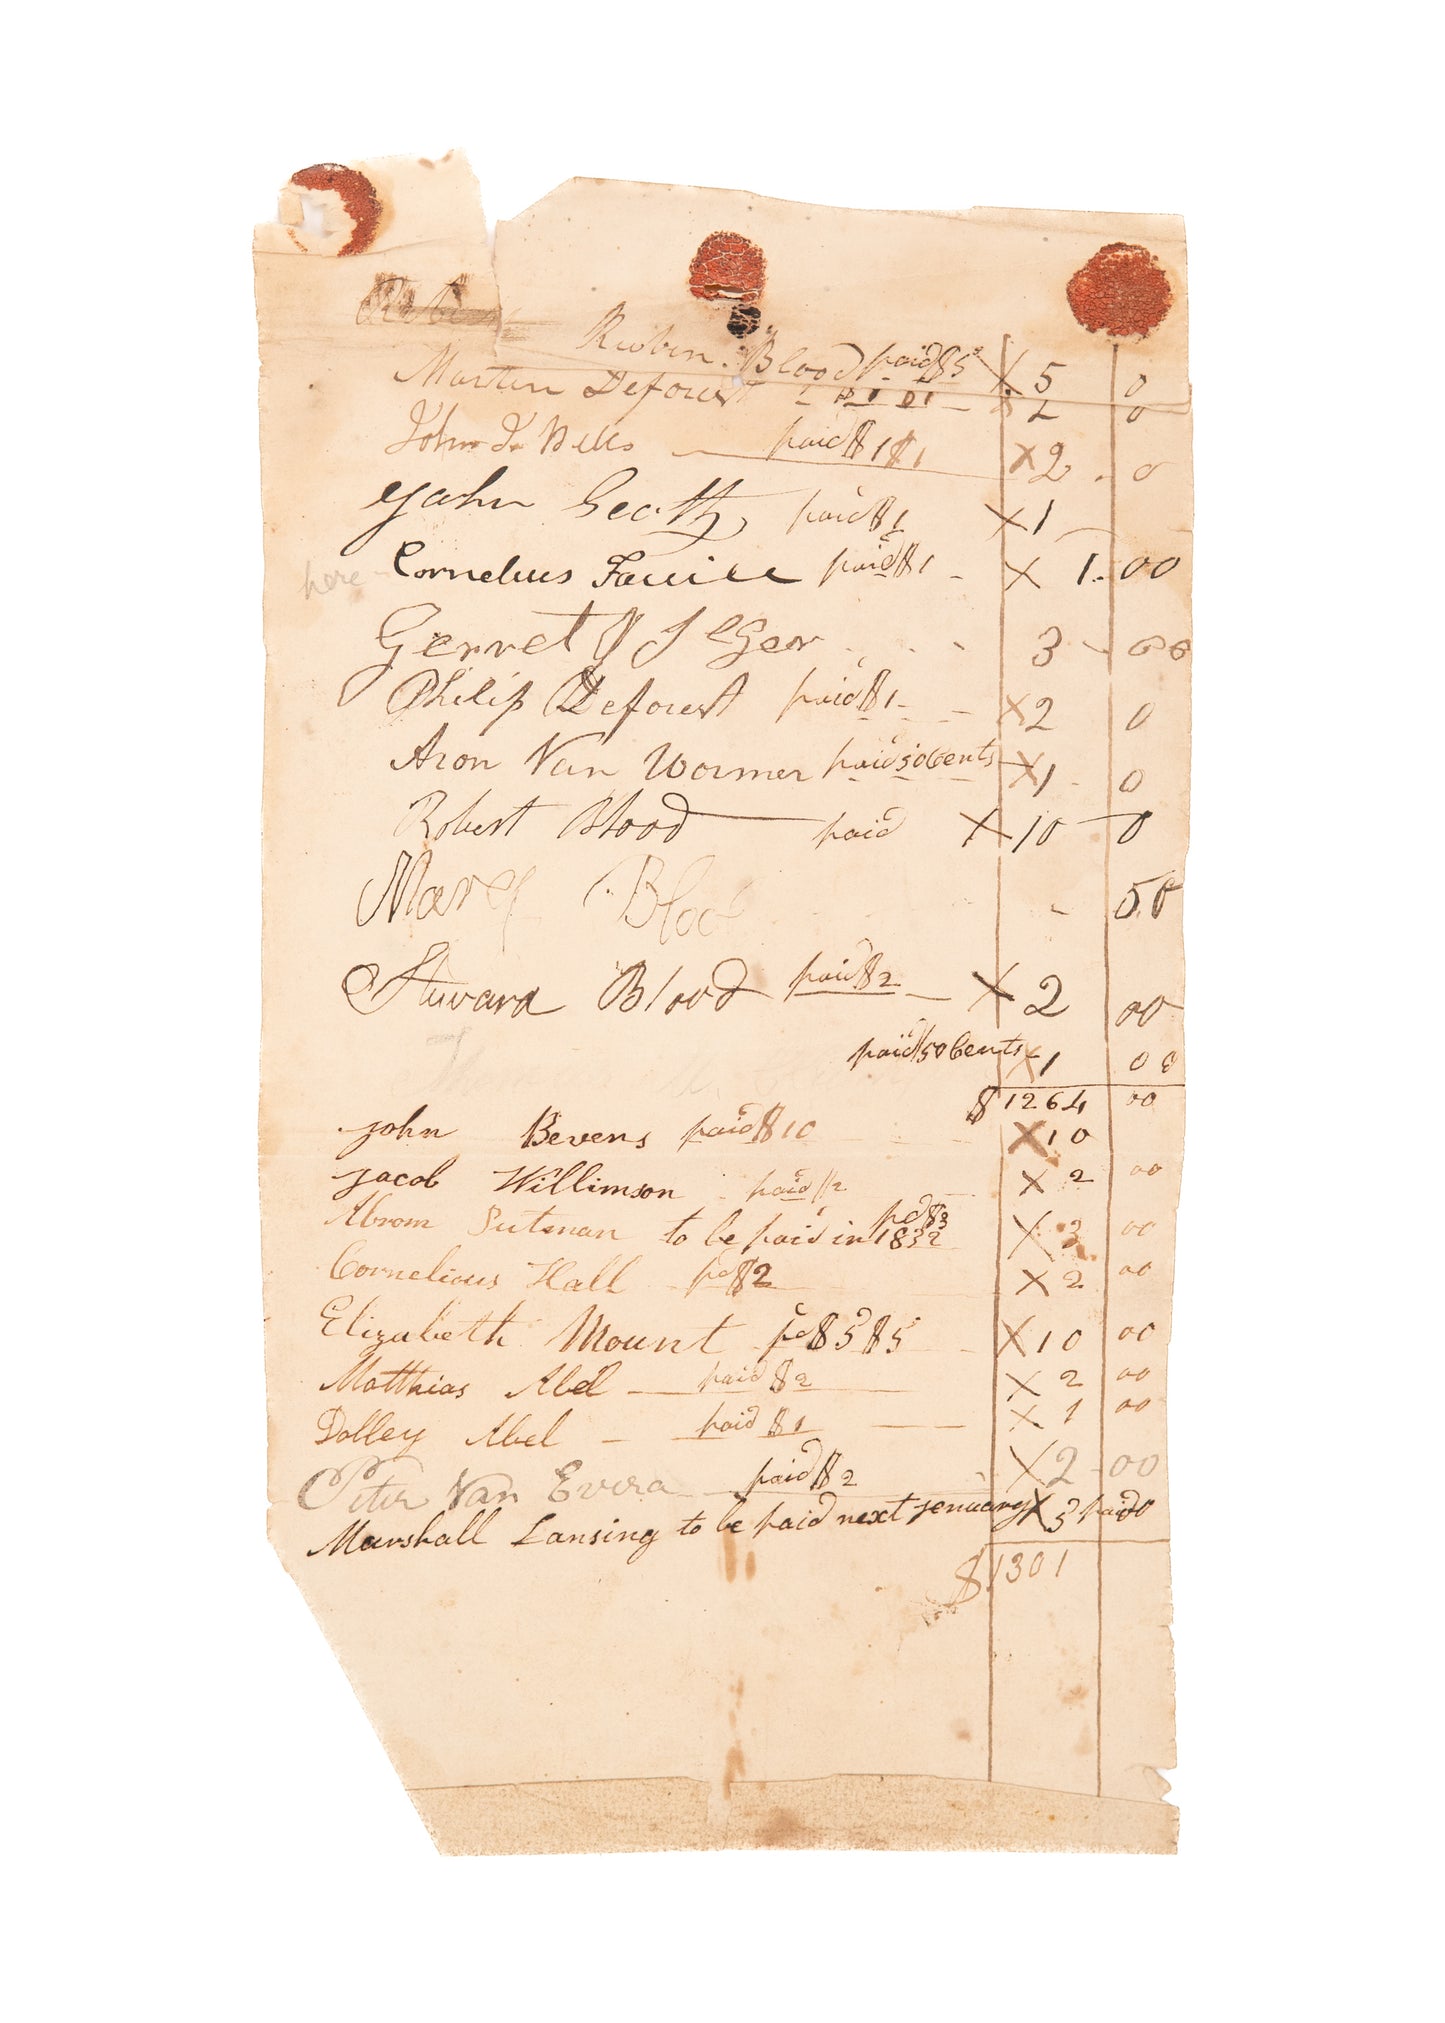 Rubin Blood paid $5 X 5 0
Martin Deforest $1 $1 X 2 0
John T. Wells paid $1 $1 X 2 . 0
John Scott paid $1 X 1
here Cornelius paid $1 X 1. 00
Gerret Y Seger 3 00
Philip Deforest paid $1 X 2 0
Aron Van Wormer paid 50 Cents X 1 0
Robert Blood paid X 10 0
Mary Blood 50
Stuward Blood paid $2 X 2 00
paid 50 Cents X 1 00
$1264 00
John Bevens paid $10 X 10
Jacob Willimson paid $2 X 2 00
Abrom Sutman to be paid in 1832 pd $3 X 3 00
Cornelious Hall pd $2 X 2 00
Elizabeth Mount pd $5 $5 X 10 00
Matthias Abel paid $2 X 2 00
Dolley Abel paid $1 X 1 00
Peter Van Evera paid $2 X 2 00
Marshall Lansing to be paid next jenuary X 3 paid 0
$1301